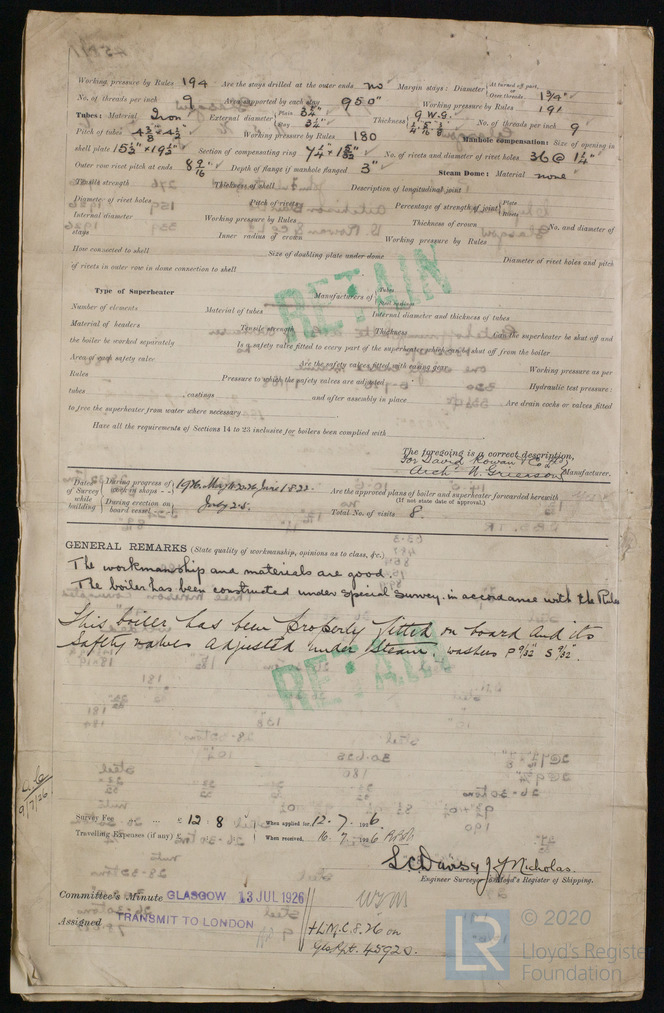 Working pressure by Rules 194 Are the stays drilled at the outer ends no Margin stays: Diameter { At turned off part, or Over threads 1 3/4"
No. of threads per inch 9 Area supported by each stay 950" Working pressure by Rules 191
Tubes: Material Iron External diameter { Plain 3 1/4" Stay 3 1/4" Thickness { 9 W.G. No. of threads per inch 9
Pitch of tubes 4 3/8 × 4 1/2" Working pressure by Rules 180 Manhole compensation: Size of opening in
shell plate 15 1/2" × 19 1/2" Section of compensating ring No. of rivets and diameter of rivet holes 36 @ 1 1/4"
Outer row rivet pitch at ends 8 9/16 Depth of flange if manhole flanged 3" Steam Dome: Material none
Tensile strength Thickness of shell Description of longitudinal joint
Diameter of rivet holes Pitch of rivets Percentage of strength of joint { Plate Rivets
Internal diameter Working pressure by Rules Thickness of crown No. and diameter of
stays Inner radius of crown Working pressure by Rules
How connected to shell Size of doubling plate under dome Diameter of rivet holes and pitch
of rivets in outer row in dome connection to shell
RETAIN
Type of Superheater Manufacturers of { Tubes
Number of elements Material of tubes Internal diameter and thickness of tubes
Material of headers Tensile strength Thickness Can the superheater be shut off and
the boiler be worked separately Is a safety valve fitted to every part of the superheater which can be shut off from the boiler
Area of each safety valve Are the safety valves fitted with easing gear Working pressure as per
Rules Pressure to which the safety valves are adjusted Hydraulic test pressure:
tubes castings and after assembly in place Are drain cocks or valves fitted
to free the superheater from water where necessary
Have all the requirements of Sections 14 to 23 inclusive for boilers been complied with
The foregoing is a correct description,
For David Rowan & Co Ltd
Arch. W. Grierson Manufacturer.
Dates of Survey while building { During progress of work in shops - - 1926. May 10. 20. 26 June 1. 8. 22. Are the approved plans of boiler and superheater forwarded herewith (If not state date of approval.)
During erection on board vessel - - - July 2. 5. Total No. of visits 8.
GENERAL REMARKS (State quality of workmanship, opinions as to class, &c.)
The workmanship and materials are good.
The boiler has been constructed under special survey in accordance with the Rules
This boiler has been properly fitted on board and its
safety valves adjusted under steam. washers P 9/32" S 9/32".
RETAIN
9/7/26
Survey Fee £ 12 : 8 : When applied for, 12. 7. 1926
Travelling Expenses (if any) £ : : When received, 16. 7. 1926
L C Davis & J. Nicholas.
Engineer Surveyor to Lloyd's Register of Shipping.
Committee's Minute GLASGOW 13 JUL 1926
Assigned TRANSMIT TO LONDON
+ L.M.C. 8.26 on
Gls Rpt. 45920.
LR © 2020
Lloyd's Register
Foundation